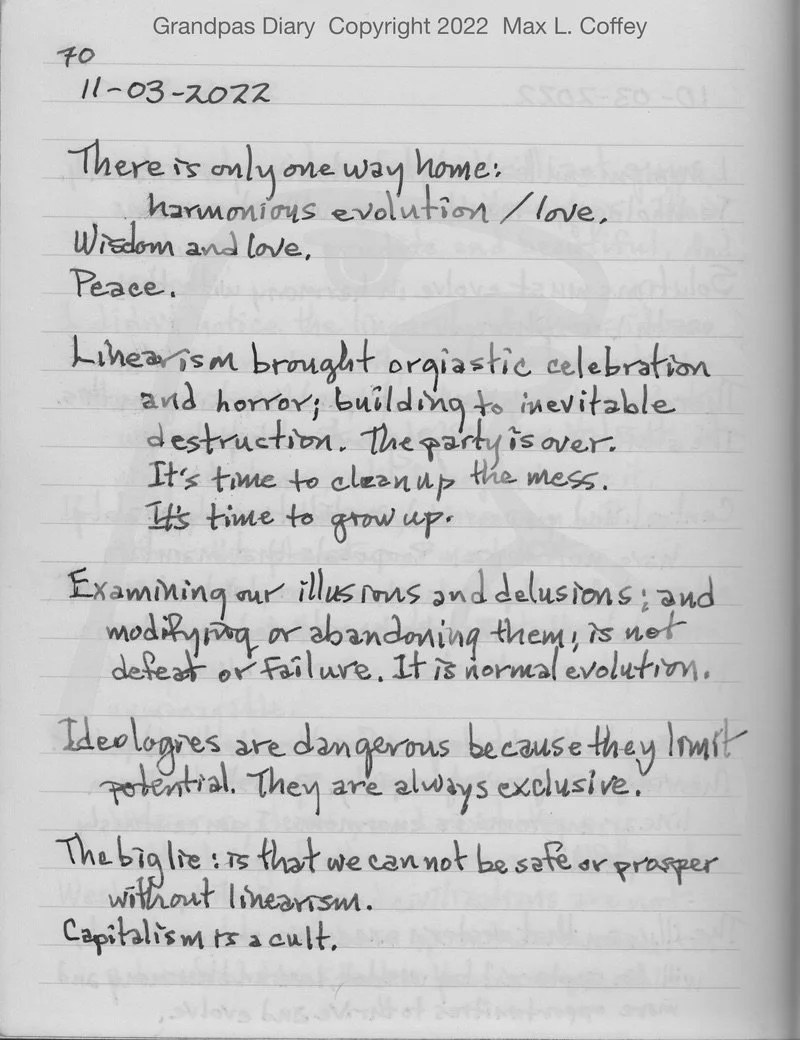 Grandpas Diary Copyright 2022 Max L. Coffey
70
11-03-2022
There is only one way home:
harmonious evolution / love.
Wisdom and love.
Peace.
Linearism brought orgiastic celebration
and horror; building to inevitable
destruction. The party is over.
It's time to clean up the mess.
It's time to grow up.
Examining our illusions and delusions; and
modifying or abandoning them; is not
defeat or failure. It is normal evolution.
Ideologies are dangerous because they limit
potential. They are always exclusive.
The big lie: is that we cannot be safe or prosper
without linearism.
Capitalism is a cult.